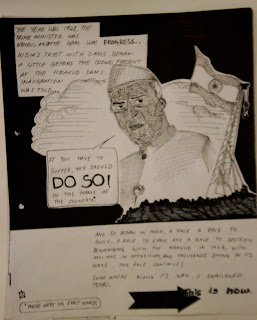 THE YEAR WAS 1948, THE
PRIME MINISTER WAS
NEHRU, AND THE GOAL WAS PROGRESS..
INDIA'S TRYST WITH DAMS BEGAN
A LITTLE BEFORE. THE CROWD PRESENT
AT THE HIRAKUD DAM'S
INAUGURATION
WAS TOLD...
IF YOU HAVE TO
SUFFER, YOU SHOULD
DO SO!
IN THE NAME OF
THE COUNTRY.*
AND SO BEGAN IN INDIA, A RACE A RACE TO
BUILD, A RACE TO EARN AND A RACE TO DESTROY
BEGINNING WITH THE HIRAKUD IN 1948, WITH
MILLIONS IN OPPOSITION, AND THOUSANDS DYING IN ITS
WAKE, THE RACE CONTINUES.
SOMEWHERE ALONG ITS WAY, IT SWALLOWED
TEHRI.
THIS IS HOW.
* THESE WERE HIS EXACT WORDS